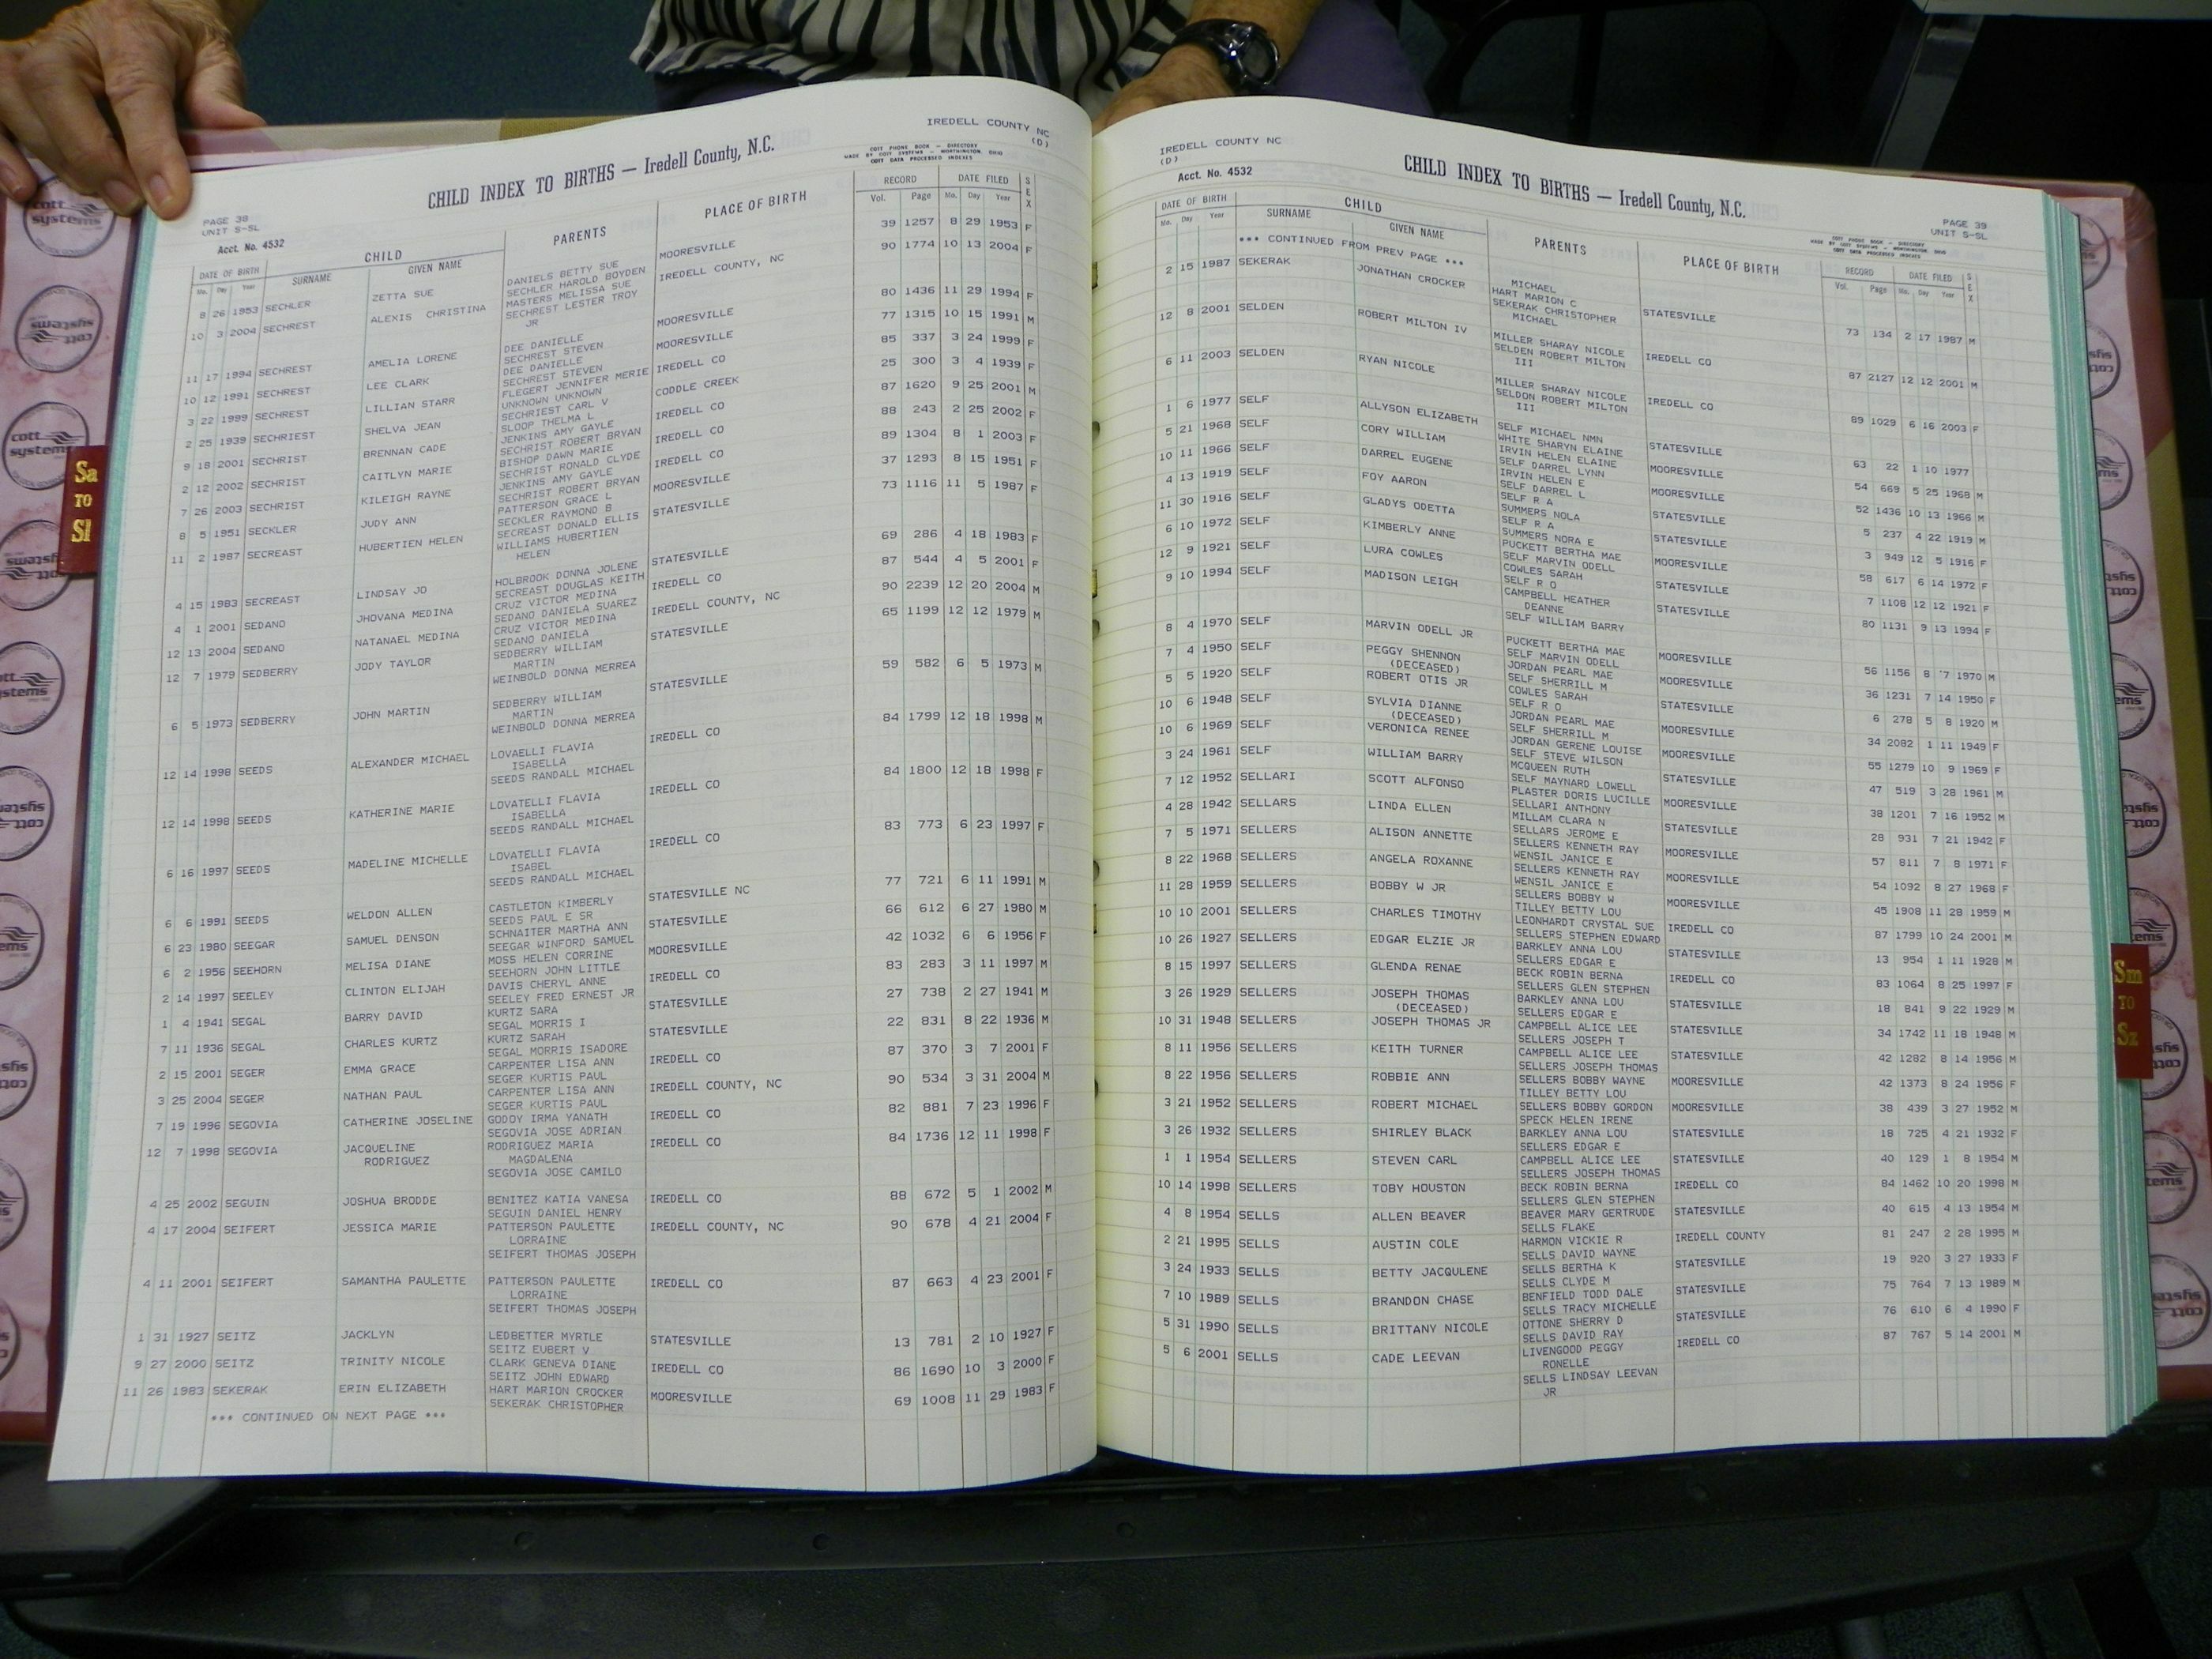 IREDELL COUNTY NC
(D)
COTT PHONE BOOK — DIRECTORY
MADE BY COTT SYSTEMS — WORTHINGTON, OHIO
COTT DATA PROCESSED INDEXES
CHILD INDEX TO BIRTHS — Iredell County, N.C.
PAGE 38
UNIT S-SL
Acct. No. 4532
DATE OF BIRTH CHILD PARENTS PLACE OF BIRTH RECORD DATE FILED SEX
Mo. Day Year SURNAME GIVEN NAME Vol. Page Mo. Day Year
8 26 1953 SECHLER ZETTA SUE DANIELS BETTY SUE MOORESVILLE 39 1257 8 29 1953 F
SECHLER HAROLD BOYDEN
10 3 2004 SECHREST ALEXIS CHRISTINA MASTERS MELISSA SUE IREDELL COUNTY, NC 90 1774 10 13 2004 F
SECHREST LESTER TROY
JR
11 17 1994 SECHREST AMELIA LORENE DEE DANIELLE MOORESVILLE 80 1436 11 29 1994 F
SECHREST STEVEN
10 12 1991 SECHREST LEE CLARK DEE DANIELLE MOORESVILLE 77 1315 10 15 1991 M
SECHREST STEVEN
3 22 1999 SECHREST LILLIAN STARR FLEGERT JENNIFER MERIE IREDELL CO 85 337 3 24 1999 F
UNKNOWN UNKNOWN
2 25 1939 SECHRIEST SHELVA JEAN SECHRIEST CARL V CODDLE CREEK 25 300 3 4 1939 F
SLOOP THELMA L
9 18 2001 SECHRIST BRENNAN CADE JENKINS AMY GAYLE IREDELL CO 87 1620 9 25 2001 M
SECHRIST ROBERT BRYAN
2 12 2002 SECHRIST CAITLYN MARIE BISHOP DAWN MARIE IREDELL CO 88 243 2 25 2002 F
SECHRIST RONALD CLYDE
7 26 2003 SECHRIST KILEIGH RAYNE JENKINS AMY GAYLE IREDELL CO 89 1304 8 1 2003 F
SECHRIST ROBERT BRYAN
8 5 1951 SECKLER JUDY ANN PATTERSON GRACE L MOORESVILLE 37 1293 8 15 1951 F
SECKLER RAYMOND B
11 2 1987 SECREAST HUBERTIEN HELEN SECREAST DONALD ELLIS STATESVILLE 73 1116 11 5 1987 F
WILLIAMS HUBERTIEN
HELEN
4 15 1983 SECREAST LINDSAY JO HOLBROOK DONNA JOLENE STATESVILLE 69 286 4 18 1983 F
SECREAST DOUGLAS KEITH
4 1 2001 SEDANO JHOVANA MEDINA CRUZ VICTOR MEDINA IREDELL CO 87 544 4 5 2001 F
SEDANO DANIELA SUAREZ
12 13 2004 SEDANO NATANAEL MEDINA CRUZ VICTOR MEDINA IREDELL COUNTY, NC 90 2239 12 20 2004 M
SEDANO DANIELA
12 7 1979 SEDBERRY JODY TAYLOR SEDBERRY WILLIAM STATESVILLE 65 1199 12 12 1979 M
MARTIN
WEINBOLD DONNA MERREA
6 5 1973 SEDBERRY JOHN MARTIN SEDBERRY WILLIAM STATESVILLE 59 582 6 5 1973 M
MARTIN
WEINBOLD DONNA MERREA
12 14 1998 SEEDS ALEXANDER MICHAEL LOVAELLI FLAVIA IREDELL CO 84 1799 12 18 1998 M
ISABELLA
SEEDS RANDALL MICHAEL
12 14 1998 SEEDS KATHERINE MARIE LOVATELLI FLAVIA IREDELL CO 84 1800 12 18 1998 F
ISABELLA
SEEDS RANDALL MICHAEL
6 16 1997 SEEDS MADELINE MICHELLE LOVATELLI FLAVIA IREDELL CO 83 773 6 23 1997 F
ISABEL
SEEDS RANDALL MICHAEL
6 6 1991 SEEDS WELDON ALLEN CASTLETON KIMBERLY STATESVILLE NC 77 721 6 11 1991 M
SEEDS PAUL E SR
6 23 1980 SEEGAR SAMUEL DENSON SCHNAITER MARTHA ANN STATESVILLE 66 612 6 27 1980 M
SEEGAR WINFORD SAMUEL
6 2 1956 SEEHORN MELISA DIANE MOSS HELEN CORRINE MOORESVILLE 42 1032 6 6 1956 F
SEEHORN JOHN LITTLE
2 14 1997 SEELEY CLINTON ELIJAH DAVIS CHERYL ANNE IREDELL CO 83 283 3 11 1997 M
SEELEY FRED ERNEST JR
1 4 1941 SEGAL BARRY DAVID KURTZ SARA STATESVILLE 27 738 2 27 1941 M
SEGAL MORRIS I
7 11 1936 SEGAL CHARLES KURTZ KURTZ SARAH STATESVILLE 22 831 8 22 1936 M
SEGAL MORRIS ISADORE
2 15 2001 SEGER EMMA GRACE CARPENTER LISA ANN IREDELL CO 87 370 3 7 2001 F
SEGER KURTIS PAUL
3 25 2004 SEGER NATHAN PAUL CARPENTER LISA ANN IREDELL COUNTY, NC 90 534 3 31 2004 M
SEGER KURTIS PAUL
7 19 1996 SEGOVIA CATHERINE JOSELINE GODOY IRMA YANATH IREDELL CO 82 881 7 23 1996 F
SEGOVIA JOSE ADRIAN
12 7 1998 SEGOVIA JACQUELINE RODRIGUEZ MARIA IREDELL CO 84 1736 12 11 1998 F
RODRIGUEZ MAGDALENA
SEGOVIA JOSE CAMILO
4 25 2002 SEGUIN JOSHUA BRODDE BENITEZ KATIA VANESA IREDELL CO 88 672 5 1 2002 M
SEGUIN DANIEL HENRY
4 17 2004 SEIFERT JESSICA MARIE PATTERSON PAULETTE IREDELL COUNTY, NC 90 678 4 21 2004 F
LORRAINE
SEIFERT THOMAS JOSEPH
4 11 2001 SEIFERT SAMANTHA PAULETTE PATTERSON PAULETTE IREDELL CO 87 663 4 23 2001 F
LORRAINE
SEIFERT THOMAS JOSEPH
1 31 1927 SEITZ JACKLYN LEDBETTER MYRTLE STATESVILLE 13 781 2 10 1927 F
SEITZ EUBERT V
9 27 2000 SEITZ TRINITY NICOLE CLARK GENEVA DIANE IREDELL CO 86 1690 10 3 2000 F
SEITZ JOHN EDWARD
11 26 1983 SEKERAK ERIN ELIZABETH HART MARION CROCKER MOORESVILLE 69 1008 11 29 1983 F
SEKERAK CHRISTOPHER
*** CONTINUED ON NEXT PAGE ***
IREDELL COUNTY NC
(D)
Acct. No. 4532
CHILD INDEX TO BIRTHS — Iredell County, N.C.
PAGE 39
UNIT S-SL
COTT PHONE BOOK — DIRECTORY
MADE BY COTT SYSTEMS — WORTHINGTON, OHIO
COTT DATA PROCESSED INDEXES
DATE OF BIRTH CHILD PARENTS PLACE OF BIRTH RECORD DATE FILED SEX
Mo. Day Year SURNAME GIVEN NAME Vol. Page Mo. Day Year
*** CONTINUED FROM PREV PAGE ***
MICHAEL
2 15 1987 SEKERAK JONATHAN CROCKER HART MARION C STATESVILLE 73 134 2 17 1987 M
SEKERAK CHRISTOPHER
MICHAEL
12 8 2001 SELDEN ROBERT MILTON IV MILLER SHARAY NICOLE IREDELL CO 87 2127 12 12 2001 M
SELDEN ROBERT MILTON
III
6 11 2003 SELDEN RYAN NICOLE MILLER SHARAY NICOLE IREDELL CO 89 1029 6 16 2003 F
SELDON ROBERT MILTON
III
1 6 1977 SELF ALLYSON ELIZABETH SELF MICHAEL NMN STATESVILLE 63 22 1 10 1977
WHITE SHARYN ELAINE
5 21 1968 SELF CORY WILLIAM IRVIN HELEN ELAINE MOORESVILLE 54 669 5 25 1968 M
SELF DARREL LYNN
10 11 1966 SELF DARREL EUGENE IRVIN HELEN E MOORESVILLE 52 1436 10 13 1966 M
SELF DARREL L
4 13 1919 SELF FOY AARON SELF R A STATESVILLE 5 237 4 22 1919 M
SUMMERS NOLA
11 30 1916 SELF GLADYS ODETTA SELF R A STATESVILLE 3 949 12 5 1916 F
SUMMERS NORA E
6 10 1972 SELF KIMBERLY ANNE PUCKETT BERTHA MAE MOORESVILLE 58 617 6 14 1972 F
SELF MARVIN ODELL
12 9 1921 SELF LURA COWLES COWLES SARAH STATESVILLE 7 1108 12 12 1921 F
SELF R O
9 10 1994 SELF MADISON LEIGH CAMPBELL HEATHER STATESVILLE 80 1131 9 13 1994 F
DEANNE
SELF WILLIAM BARRY
8 4 1970 SELF MARVIN ODELL JR PUCKETT BERTHA MAE MOORESVILLE 56 1156 8 7 1970 M
SELF MARVIN ODELL
7 4 1950 SELF PEGGY SHENNON JORDAN PEARL MAE MOORESVILLE 36 1231 7 14 1950 F
(DECEASED) SELF SHERRILL M
5 5 1920 SELF ROBERT OTIS JR COWLES SARAH STATESVILLE 6 278 5 8 1920 M
SELF R O
10 6 1948 SELF SYLVIA DIANNE JORDAN PEARL MAE MOORESVILLE 34 2082 1 11 1949 F
(DECEASED) SELF SHERRILL M
10 6 1969 SELF VERONICA RENEE JORDAN GERENE LOUISE MOORESVILLE 55 1279 10 9 1969 F
SELF STEVE WILSON
3 24 1961 SELF WILLIAM BARRY MCQUEEN RUTH STATESVILLE 47 519 3 28 1961 M
SELF MAYNARD LOWELL
7 12 1952 SELLARI SCOTT ALFONSO PLASTER DORIS LUCILLE MOORESVILLE 38 1201 7 16 1952 M
SELLARI ANTHONY
4 28 1942 SELLARS LINDA ELLEN MILLAM CLARA N STATESVILLE 28 931 7 21 1942 F
SELLARS JEROME E
7 5 1971 SELLERS ALISON ANNETTE SELLERS KENNETH RAY MOORESVILLE 57 811 7 8 1971 F
WENSIL JANICE E
8 22 1968 SELLERS ANGELA ROXANNE SELLERS KENNETH RAY MOORESVILLE 54 1092 8 27 1968 F
WENSIL JANICE E
11 28 1959 SELLERS BOBBY W JR SELLERS BOBBY W MOORESVILLE 45 1908 11 28 1959 M
TILLEY BETTY LOU
10 10 2001 SELLERS CHARLES TIMOTHY LEONHARDT CRYSTAL SUE IREDELL CO 87 1799 10 24 2001 M
SELLERS STEPHEN EDWARD
10 26 1927 SELLERS EDGAR ELZIE JR BARKLEY ANNA LOU STATESVILLE 13 954 1 11 1928 M
SELLERS EDGAR E
8 15 1997 SELLERS GLENDA RENAE BECK ROBIN BERNA IREDELL CO 83 1064 8 25 1997 F
SELLERS GLEN STEPHEN
3 26 1929 SELLERS JOSEPH THOMAS BARKLEY ANNA LOU STATESVILLE 18 841 9 22 1929 M
(DECEASED) SELLERS EDGAR E
10 31 1948 SELLERS JOSEPH THOMAS JR CAMPBELL ALICE LEE STATESVILLE 34 1742 11 18 1948 M
SELLERS JOSEPH T
8 11 1956 SELLERS KEITH TURNER CAMPBELL ALICE LEE STATESVILLE 42 1282 8 14 1956 M
SELLERS JOSEPH THOMAS
8 22 1956 SELLERS ROBBIE ANN SELLERS BOBBY WAYNE MOORESVILLE 42 1373 8 24 1956 F
TILLEY BETTY LOU
3 21 1952 SELLERS ROBERT MICHAEL SELLERS BOBBY GORDON MOORESVILLE 38 439 3 27 1952 M
SPECK HELEN IRENE
3 26 1932 SELLERS SHIRLEY BLACK BARKLEY ANNA LOU STATESVILLE 18 725 4 21 1932 F
SELLERS EDGAR E
1 1 1954 SELLERS STEVEN CARL CAMPBELL ALICE LEE STATESVILLE 40 129 1 8 1954 M
SELLERS JOSEPH THOMAS
10 14 1998 SELLERS TOBY HOUSTON BECK ROBIN BERNA IREDELL CO 84 1462 10 20 1998 M
SELLERS GLEN STEPHEN
4 8 1954 SELLS ALLEN BEAVER BEAVER MARY GERTRUDE STATESVILLE 40 615 4 13 1954 M
SELLS FLAKE
2 21 1995 SELLS AUSTIN COLE HARMON VICKIE R IREDELL COUNTY 81 247 2 28 1995 M
SELLS DAVID WAYNE
3 24 1933 SELLS BETTY JACQULENE SELLS BERTHA K STATESVILLE 19 920 3 27 1933 F
SELLS CLYDE M
7 10 1989 SELLS BRANDON CHASE BENFIELD TODD DALE STATESVILLE 75 764 7 13 1989 M
SELLS TRACY MICHELLE
5 31 1990 SELLS BRITTANY NICOLE OTTONE SHERRY D STATESVILLE 76 610 6 4 1990 F
SELLS DAVID RAY
5 6 2001 SELLS CADE LEEVAN LIVENGOOD PEGGY IREDELL CO 87 767 5 14 2001 M
RONELLE
SELLS LINDSAY LEEVAN
JR
Sa
TO
Sl
Sm
TO
Sz
cott
systems